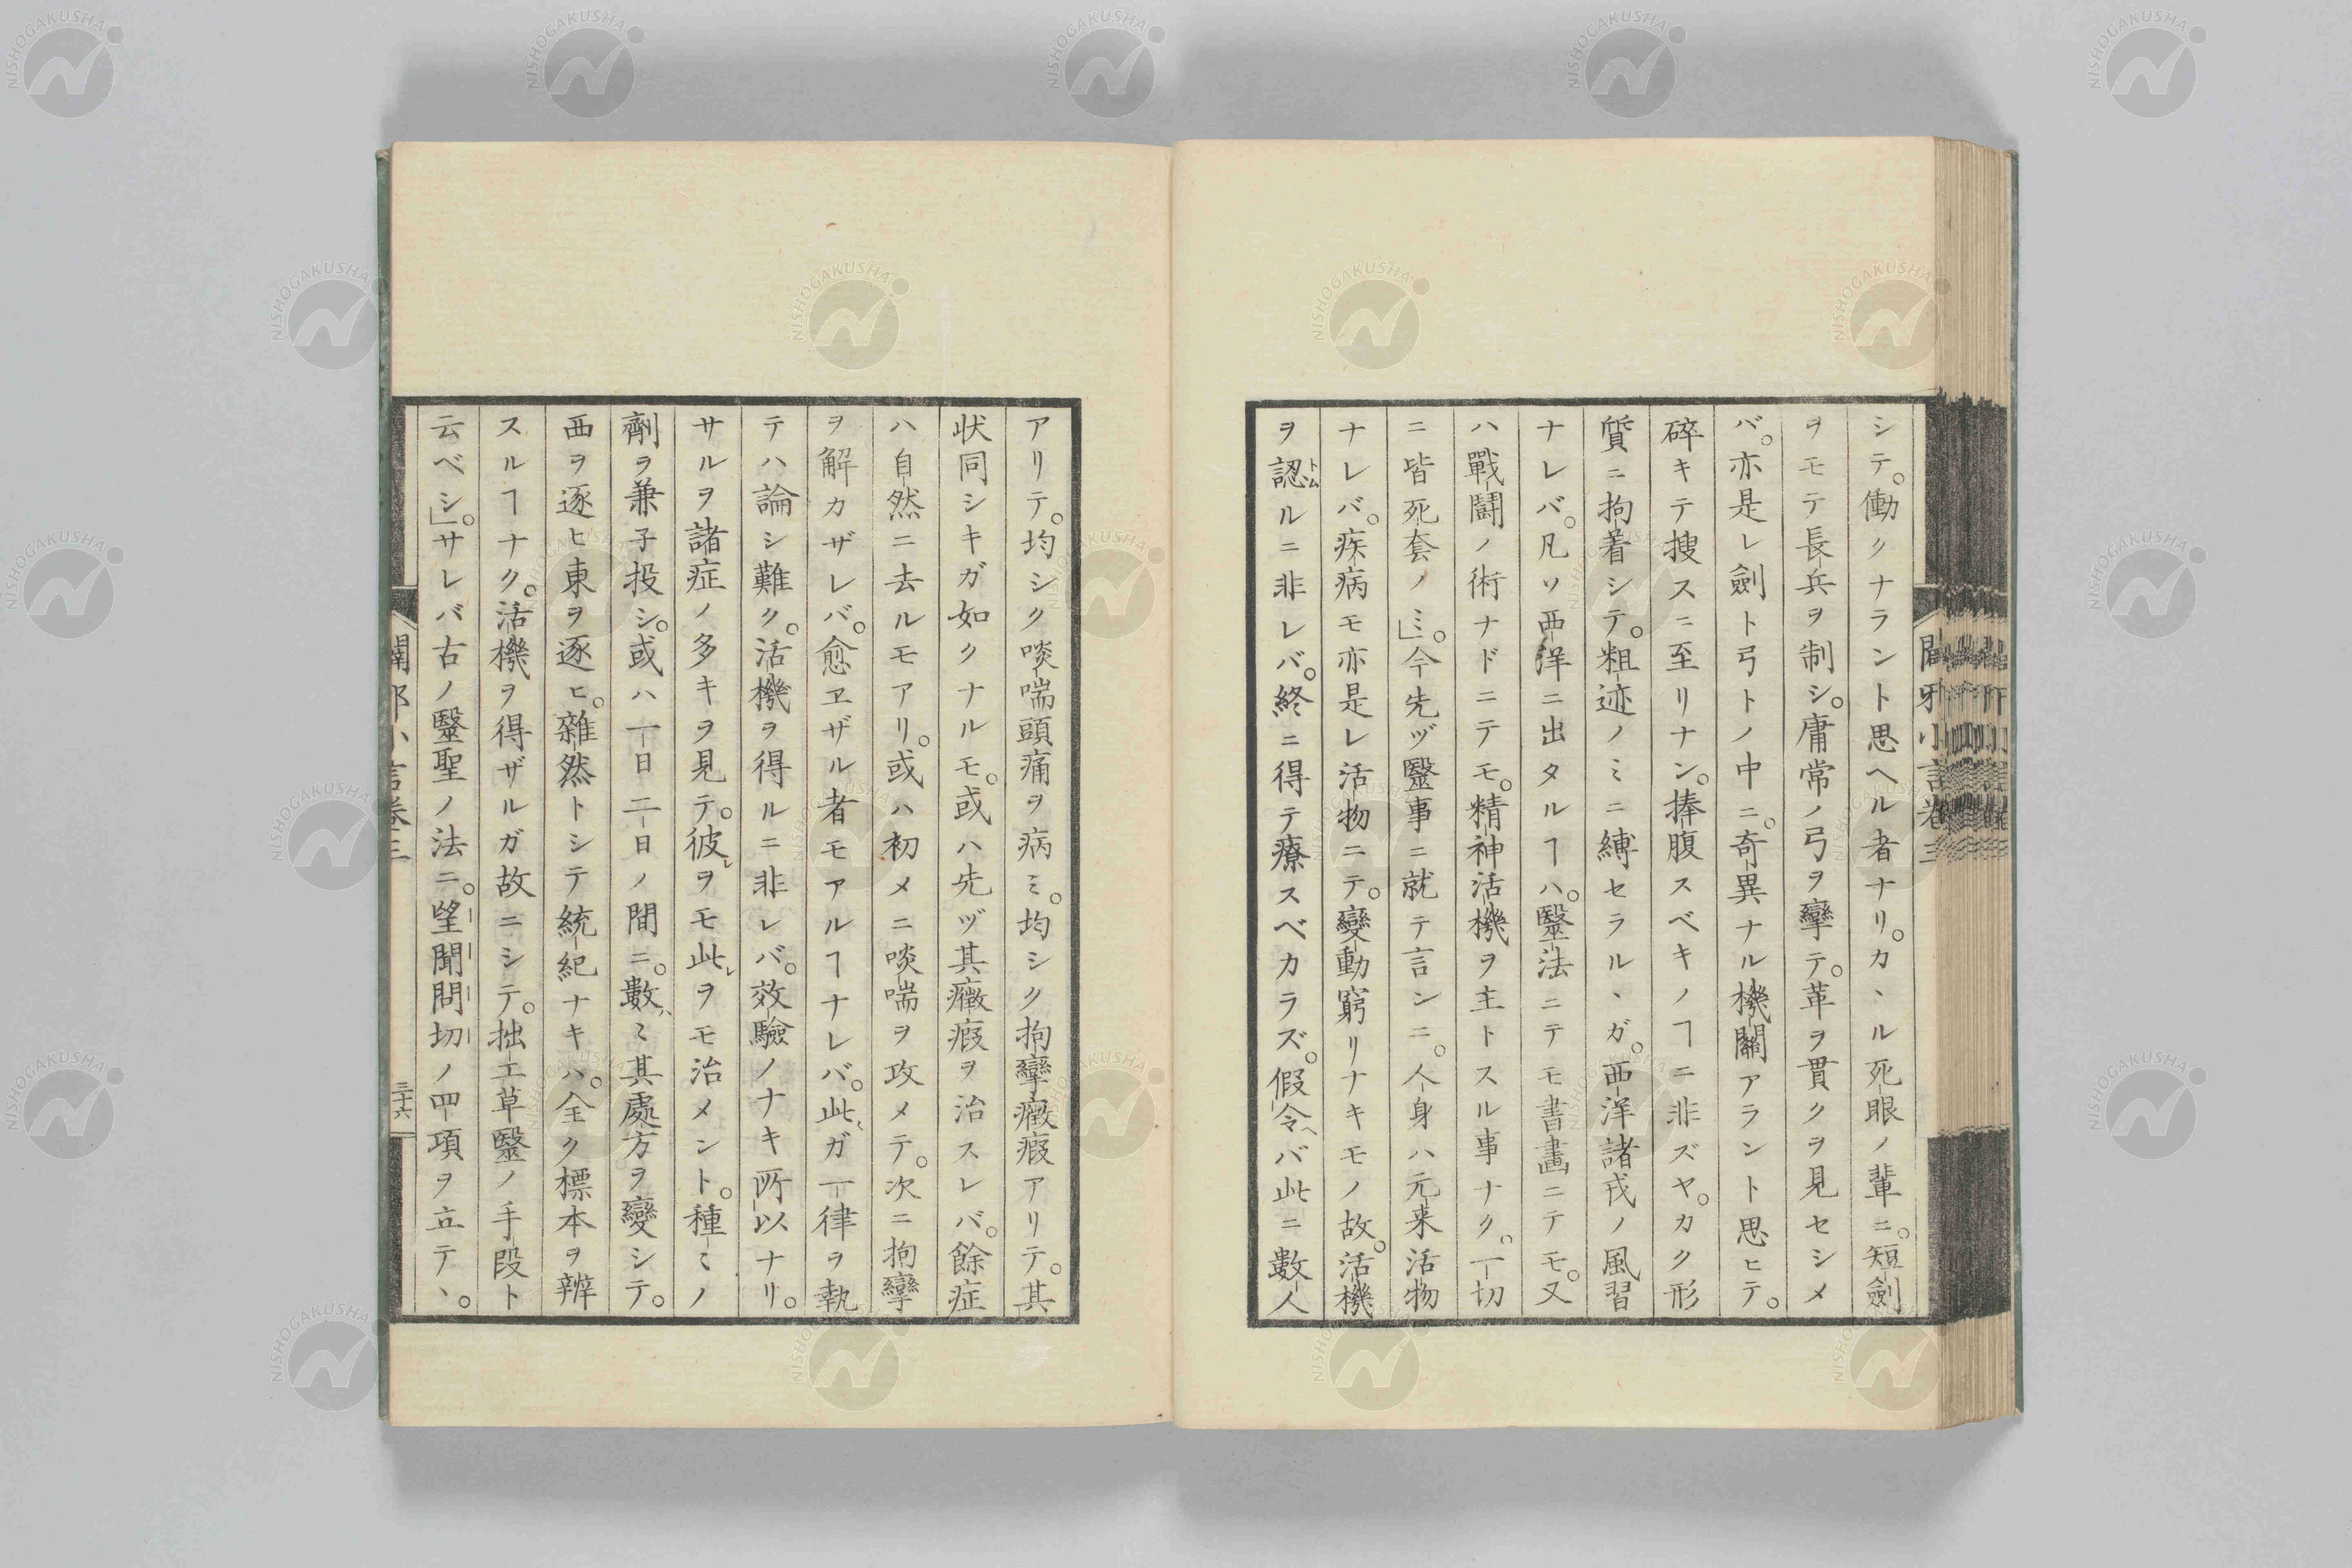 シテ。働クナラント思ヘル者ナリ。カヽル死眼ノ輩ニ。短劍
ヲモテ長兵ヲ制シ。庸常ノ弓ヲ攣テ。革ヲ貫クヲ見セシメ
バ。亦是レ劍ト弓トノ中ニ。奇異ナル機關アラント思ヒテ。
碎キテ搜スニ至リナン。捧腹スベキノヿニ非ズヤ。カク形
質ニ拘着シテ。粗迹ノミニ縛セラルヽガ。西洋諸戎ノ風習
ナレバ。凡ソ西洋ニ出タルヿハ。毉法ニテモ書畫ニテモ。又
ハ戰鬪ノ術ナドニテモ。精神活機ヲ主トスル事ナク。一切
ニ皆死套ノミ」。今先ヅ毉事ニ就テ言ンニ。人身ハ元来活物
ナレバ。疾病モ亦是レ活物ニテ。變動窮リナキモノ故。活機
ヲ認トムルニ非レバ。終ニ得テ療スベカラズ。假令ヘバ此ニ數人
闢邪小言卷三
アリテ。均シク啖喘頭痛ヲ病ミ。均シク拘攣癥瘕アリテ。其
状同シキガ如クナルモ。或ハ先ヅ其癥瘕ヲ治スレバ。餘症
ハ自然ニ去ルモアリ。或ハ初メニ啖喘ヲ攻メテ。次ニ拘攣
ヲ解カザレバ。愈ヱザル者モアルヿナレバ。此ガ一律ヲ執
テハ論シ難ク。活機ヲ得ルニ非レバ。效驗ノナキ所以ナリ。
サルヲ諸症ノ多キヲ見テ。彼レヲモ此レヲモ治メント。種ミノ
劑ヲ兼子投シ。或ハ一日二日ノ間ニ。數ミ其處方ヲ變シテ。
西ヲ逐ヒ東ヲ逐ヒ。雜然トシテ統紀ナキハ。全ク標本ヲ辨
スルヿナク。活機ヲ得ザルガ故ニシテ。拙工草毉ノ手段ト
云ベシ」。サレバ古ノ毉聖ノ法ニ。望聞問切ノ四項ヲ立テヽ。
闢邪小言卷三
三十六